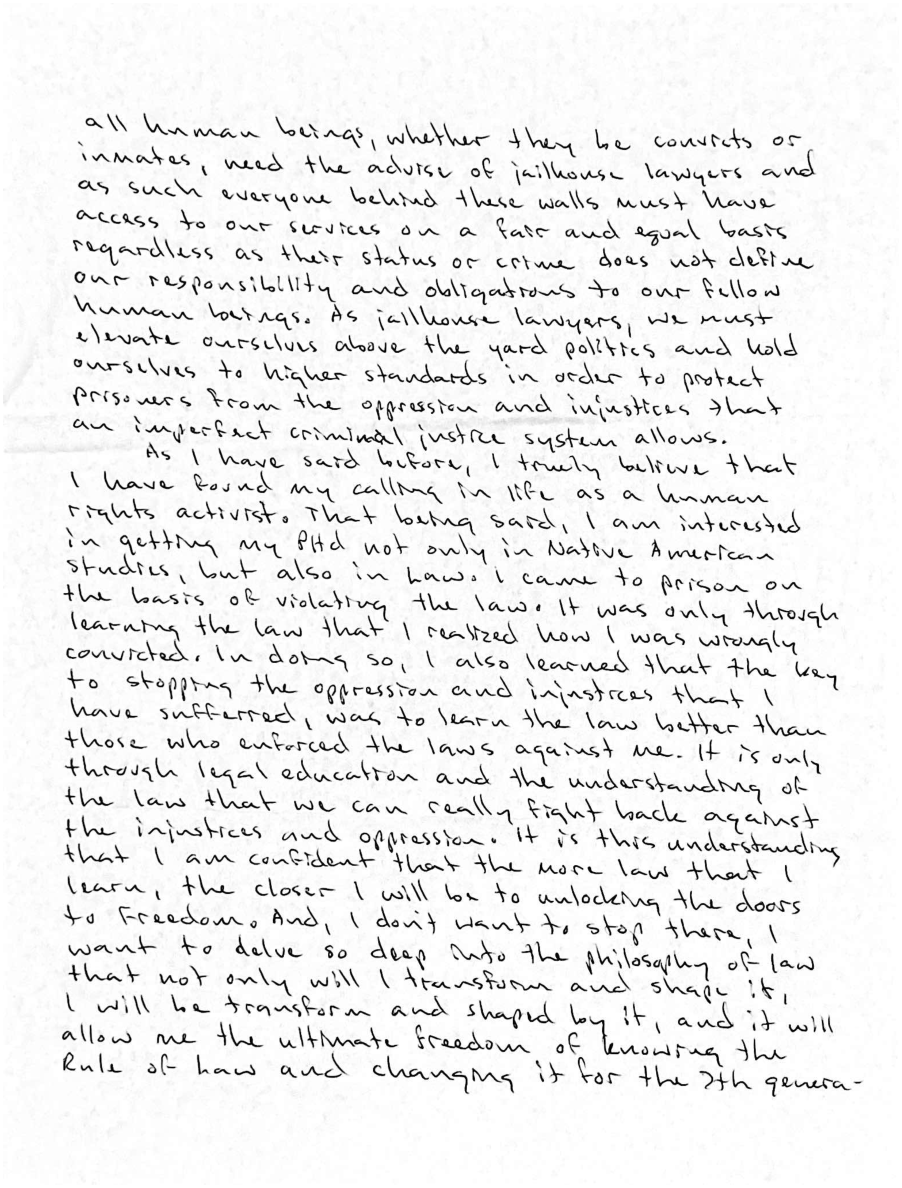 all human beings, whether they be convicts or
inmates, need the advise of jailhouse lawyers and
as such everyone behind these walls must have
access to our services on a fair and equal basis
regardless as their status or crime does not define
our responsibility and obligations to our fellow
human beings. As jailhouse lawyers, we must
elevate ourselves above the yard politics and hold
ourselves to higher standards in order to protect
prisoners from the oppression and injustices that
an imperfect criminal justice system allows.
As I have said before, I truely believe that
I have found my calling in life as a human
rights activist. That being said, I am interested
in getting my PHd not only in Native American
studies, but also in Law. I came to prison on
the basis of violating the law. It was only through
learning the law that I realized how I was wrongly
convicted. In doing so, I also learned that the key
to stopping the oppression and injustices that I
have sufferred, was to learn the law better than
those who enforced the laws against me. It is only
through legal education and the understanding of
the law that we can really fight back against
the injustices and oppression. It is this understanding
that I am confident that the more law that I
learn, the closer I will be to unlocking the doors
to Freedom. And, I don't want to stop there, I
want to delve so deep into the philosophy of law
that not only will I transform and shape it,
I will be transform and shaped by it, and it will
allow me the ultimate freedom of knowing the
Rule of Law and changing it for the 7th genera-